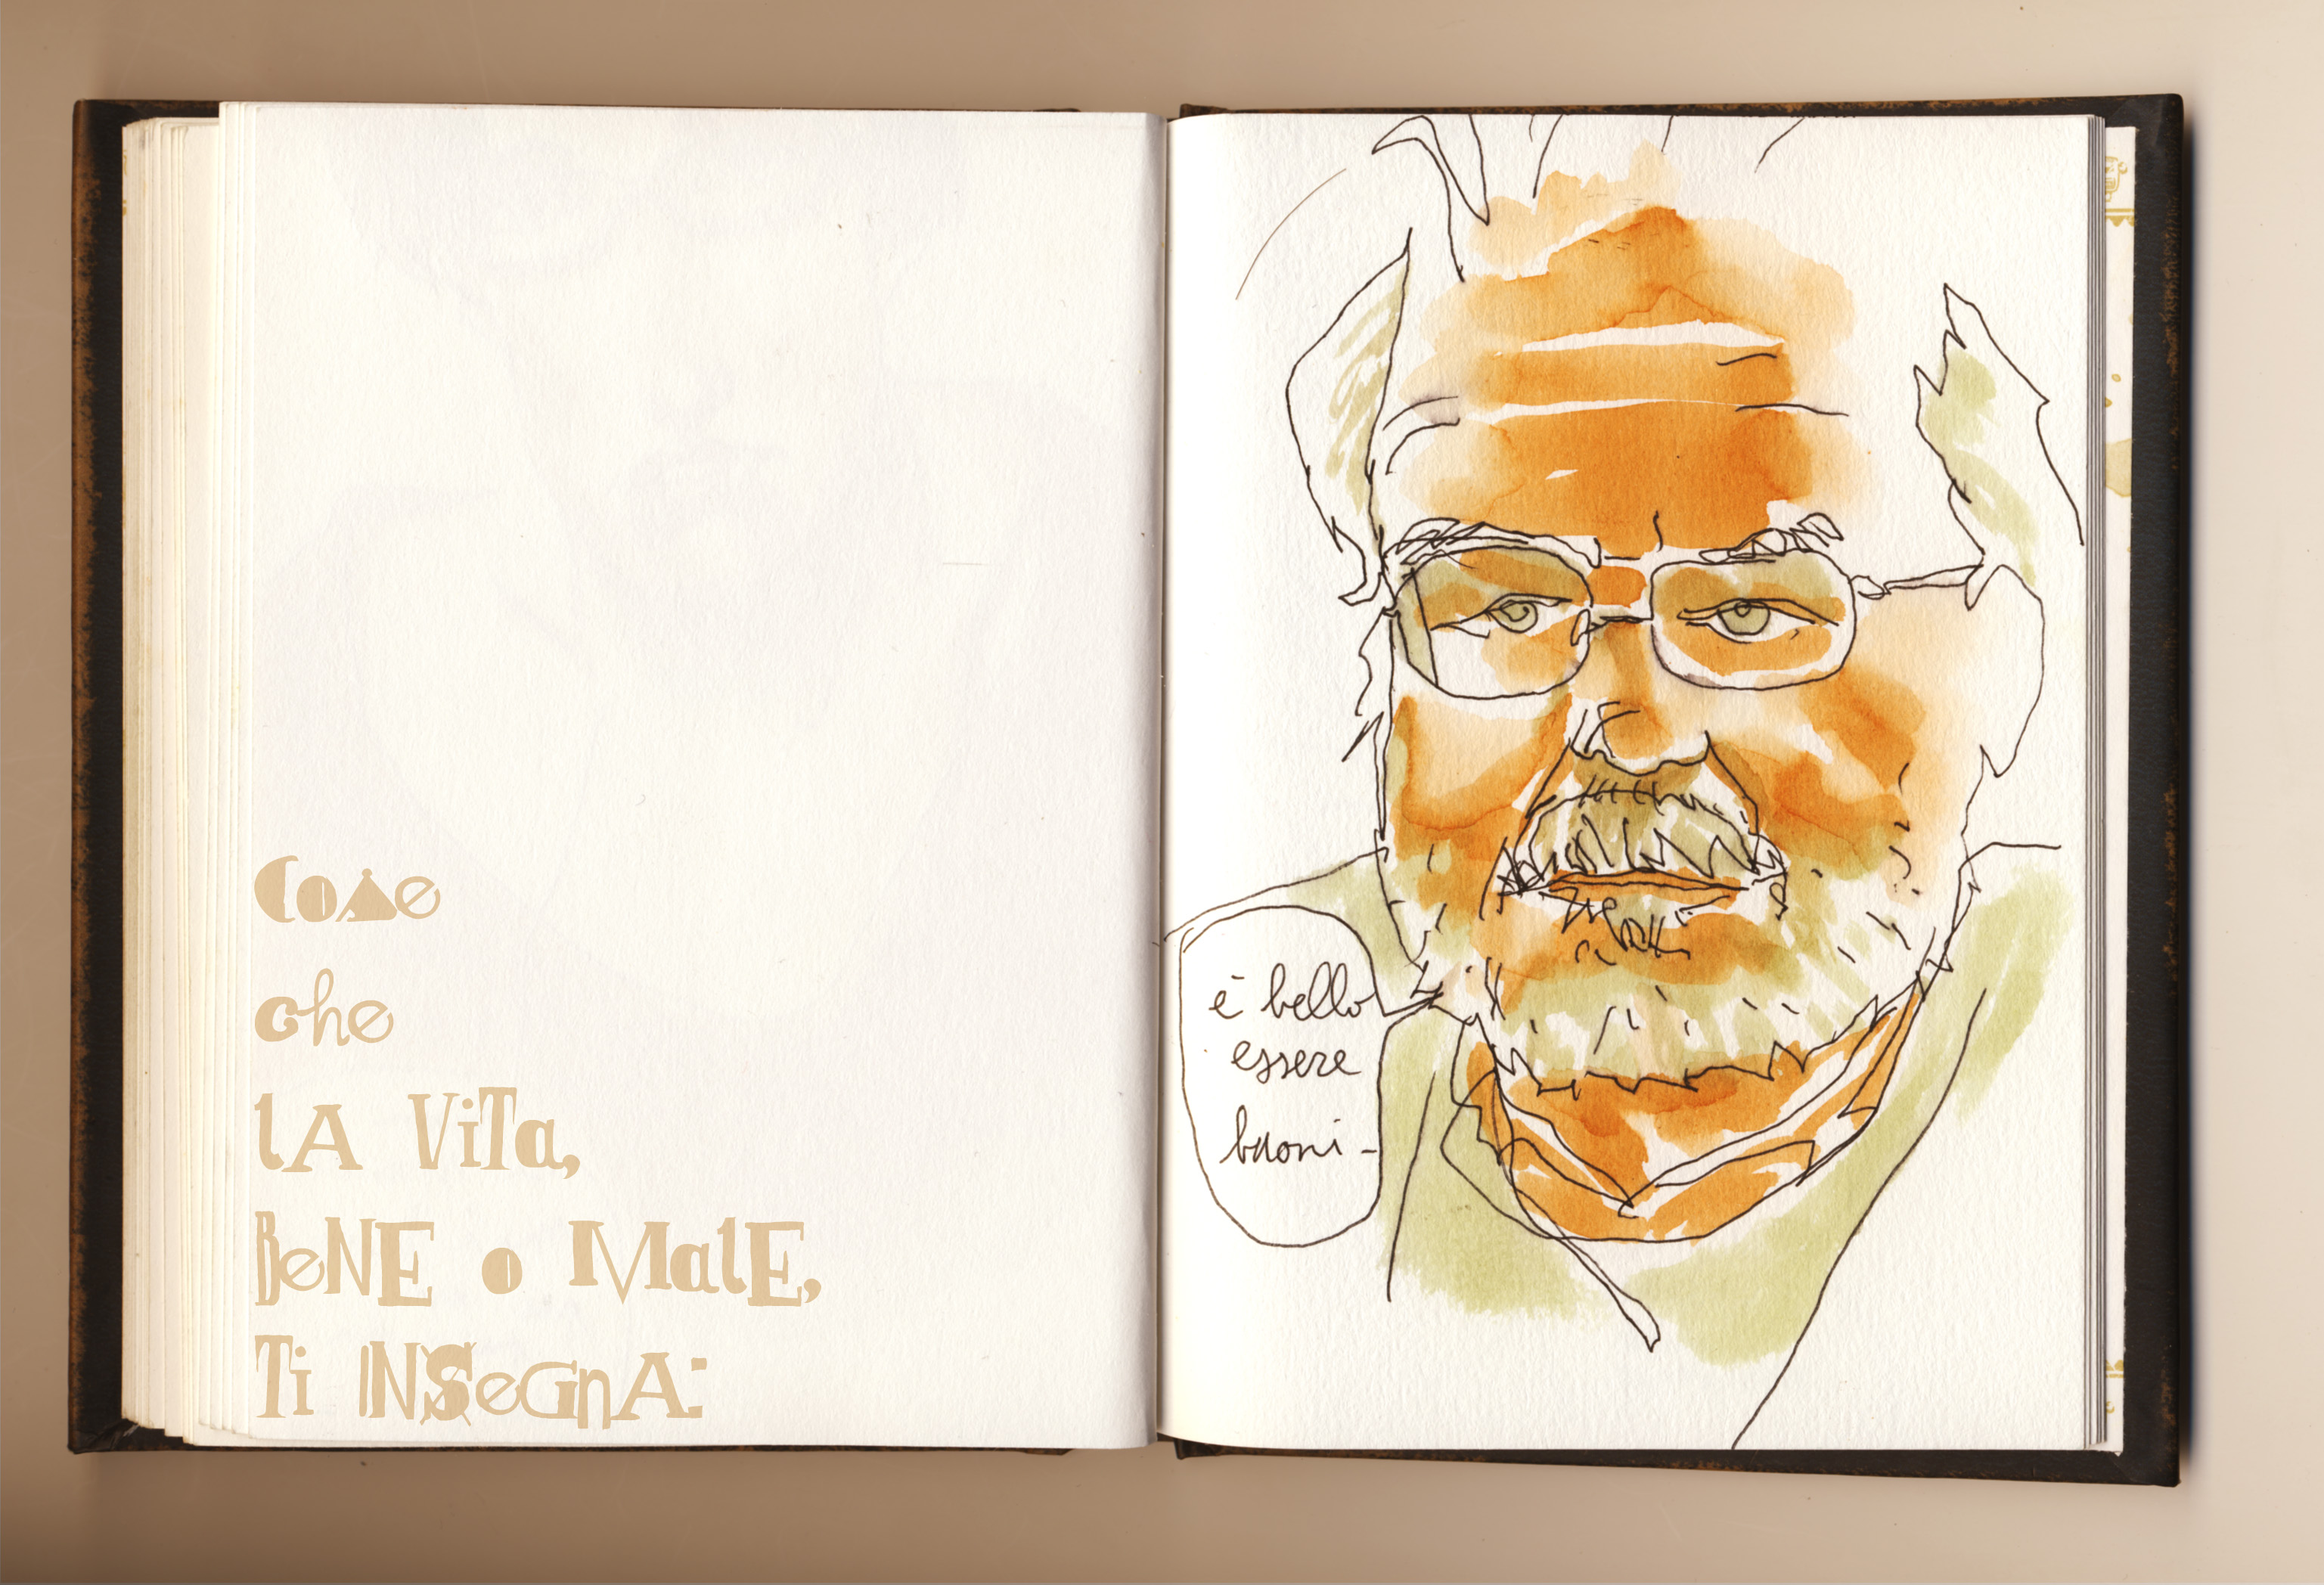 Cose
che
lA ViTa,
BeNE o MalE,
Ti INSeGnA:
è bello
essere
buoni -